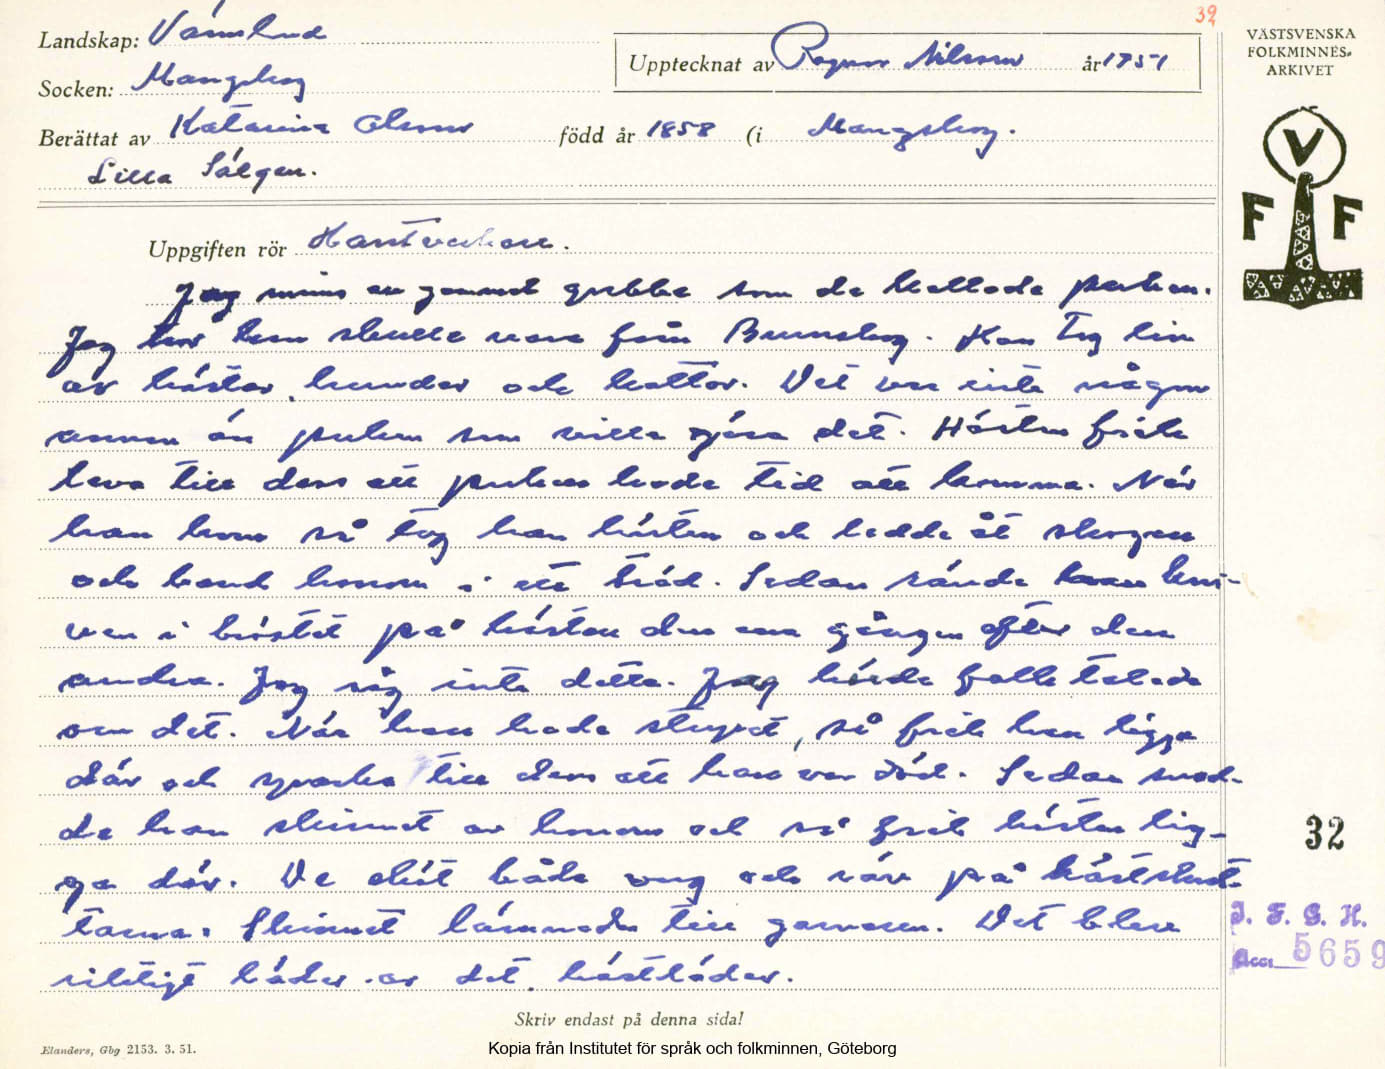 39
Landskap: Värmland
Uppteckna​t av Ragnar Nilsson år 1951
VÄSTSVENSKA
FOLKMINNES-
ARKIVET
Socken: Mangskog
Berättat av Katarina Olsson född år 1858 (i Mangskog.
Lilla Sälgen.
V
F F
Uppgiften rör Hästslakare.
Jag minns en gammal gubbe som de kallade puken.
Jag tror han skulle vara från Brunskog. Han tog liv
av hästar, hundar och kattor. Det var inte någon
annan än puken som ville göra det. Hästen fick
leva till dess att puken hade tid att komma. När
han kom så tog han hästen och ledde åt skogen
och band honom i ett träd. Sedan rände han kni-
ven i bröstet på hästen den ena gången efter den
andra. Jag såg inte detta. Jag hörde folk talade
om det. När han hade stuckit, så fick han ligga
där och sparka till dess att han var död. Sedan snod-
de han skinnet av honom och så fick hästen lig-
ga där. De sköt både varg och räv på hästskrot-
tarna. Skinnet lämnade till garvaren. Det blev
riktigt läder av det, hästläder.
32
I. F. G. H.
Acc. 5659
Skriv endast på denna sida!
Elanders, Gbg 2153. 3. 51.
Kopia från Institutet för språk och folkminnen, Göteborg